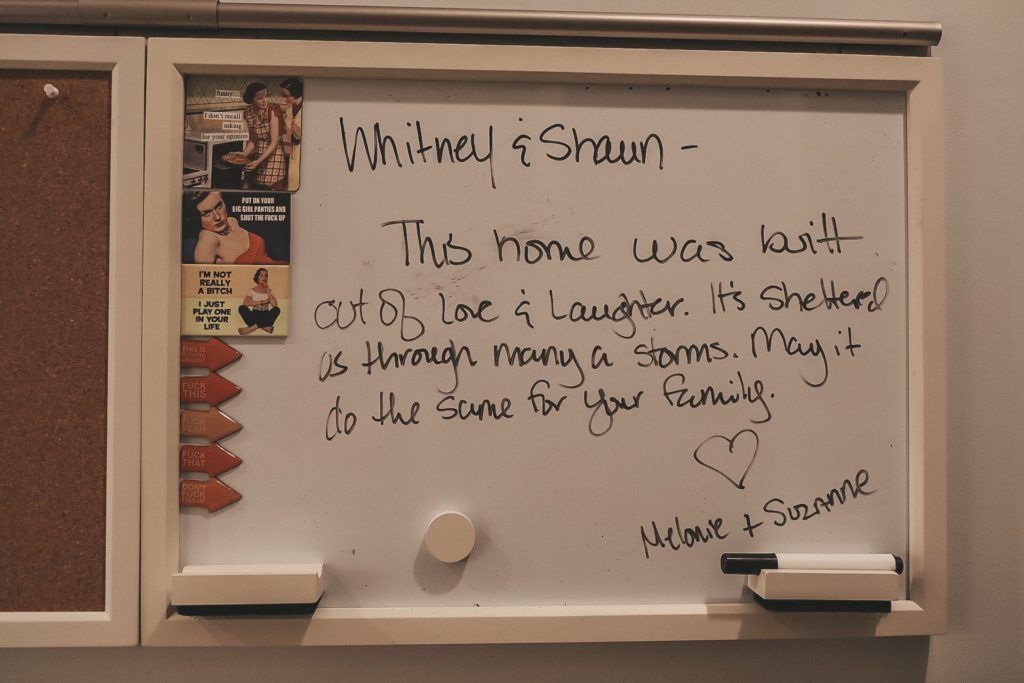 funny...
I don't recall
asking
for your opinion
PUT ON YOUR
BIG GIRL PANTIES AND
SHUT THE FUCK UP
I'M NOT
REALLY
A BITCH
I JUST
PLAY ONE
IN YOUR
LIFE
THIS IS
FUCK
THIS
FUCK
YEAH
FUCK
THAT
DON'T
FUCK
THIS UP
Whitney & Shaun -
This home was built
out of Love & Laughter. It's shelterd
us through many a storms. May it
do the same for your family.
Melonie + Suzanne